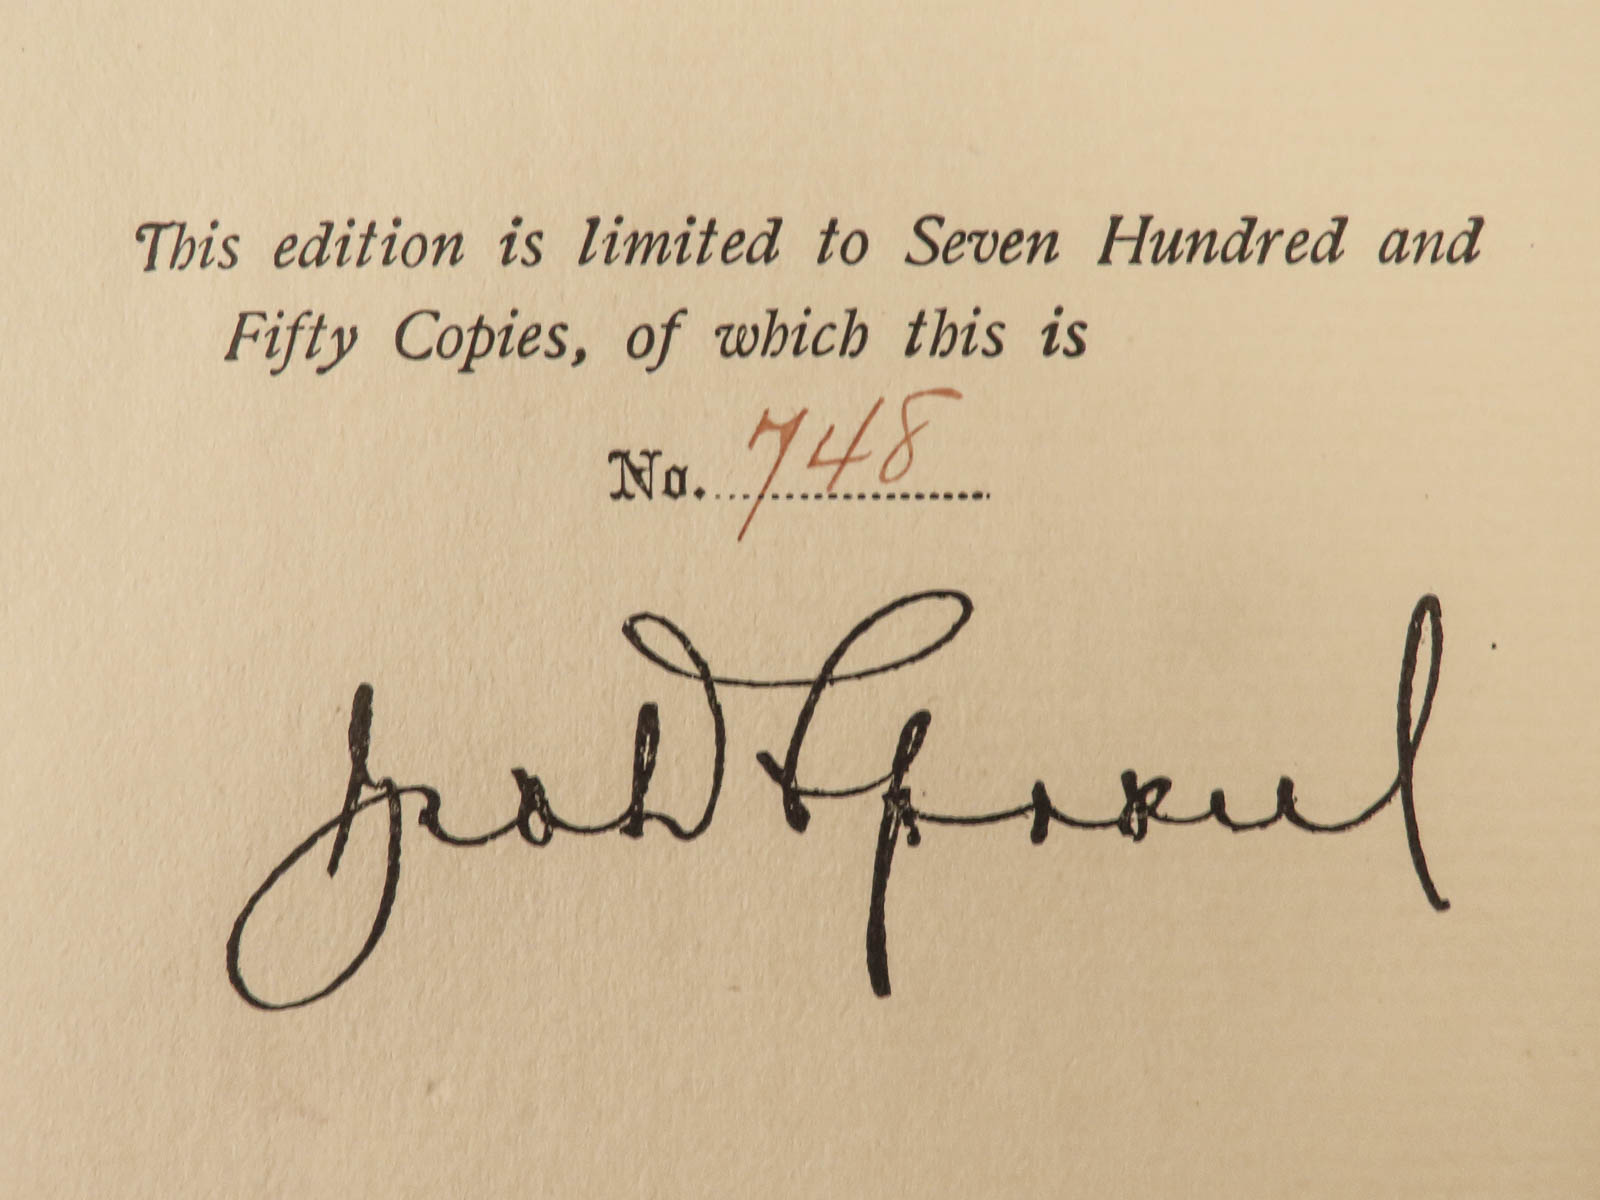 This edition is limited to Seven Hundred and
Fifty Copies, of which this is
No. 748